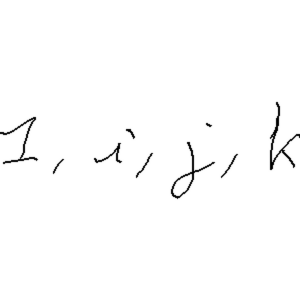 1, i, j, k